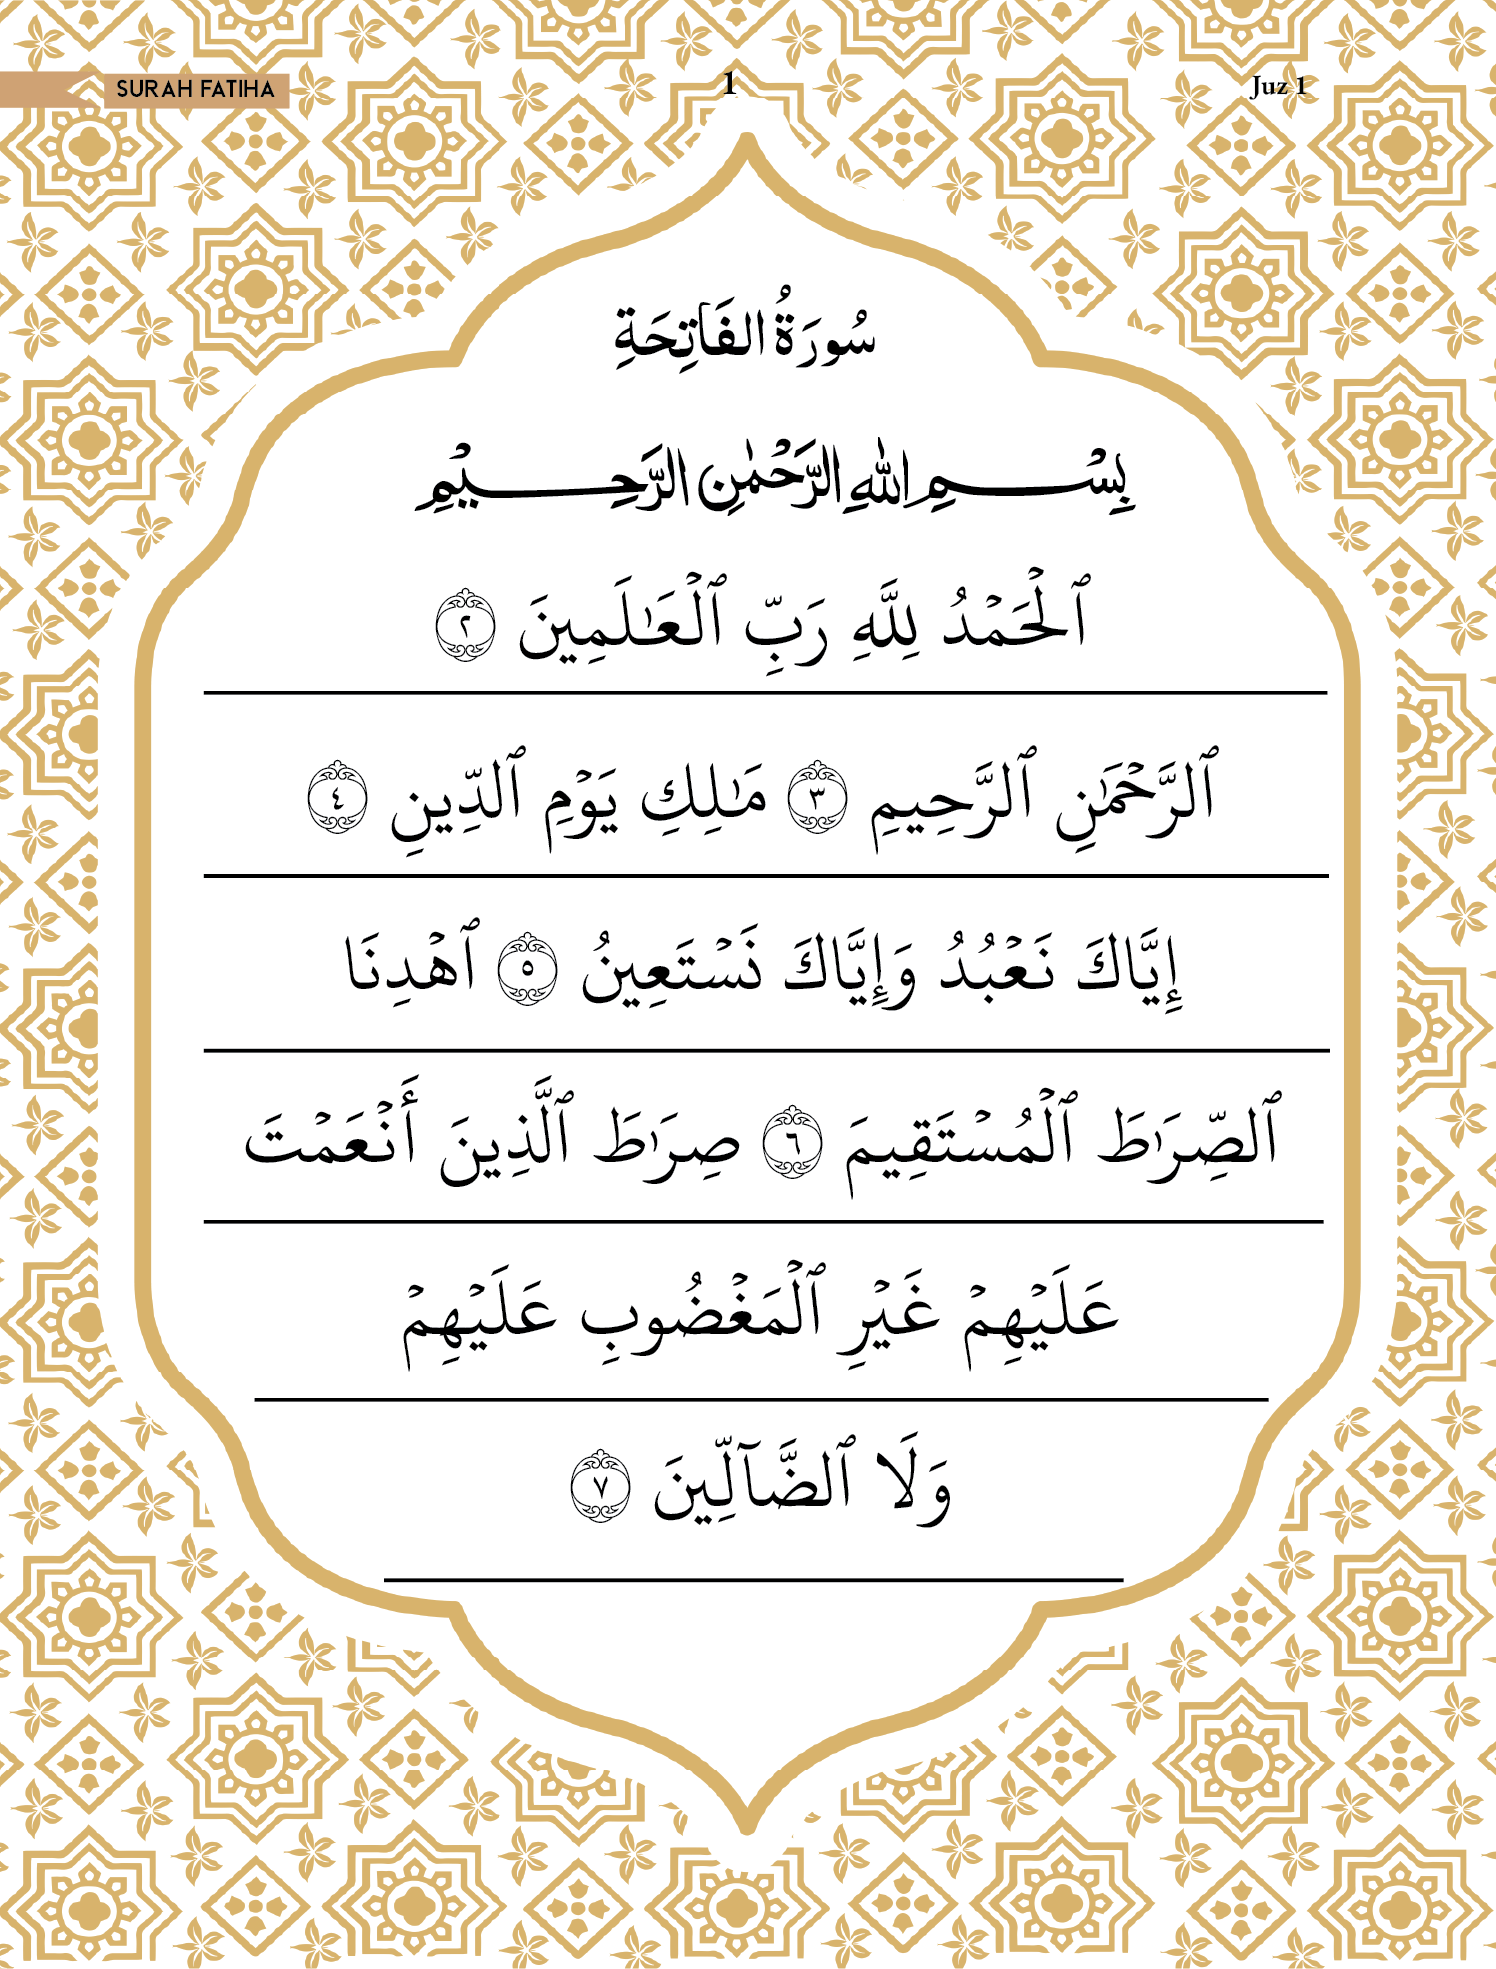 SURAH FATIHA 1 Juz 1
سُورَةُ الفَاتِحَةِ
بِسْمِ اللهِ الرَّحْمٰنِ الرَّحِيْمِ
ٱلْحَمْدُ لِلَّهِ رَبِّ ٱلْعَـٰلَمِينَ ٢
ٱلرَّحْمَـٰنِ ٱلرَّحِيمِ ٣ مَـٰلِكِ يَوْمِ ٱلدِّينِ ٤
إِيَّاكَ نَعْبُدُ وَإِيَّاكَ نَسْتَعِينُ ٥ ٱهْدِنَا
ٱلصِّرَٰطَ ٱلْمُسْتَقِيمَ ٦ صِرَٰطَ ٱلَّذِينَ أَنْعَمْتَ
عَلَيْهِمْ غَيْرِ ٱلْمَغْضُوبِ عَلَيْهِمْ
وَلَا ٱلضَّآلِّينَ ٧